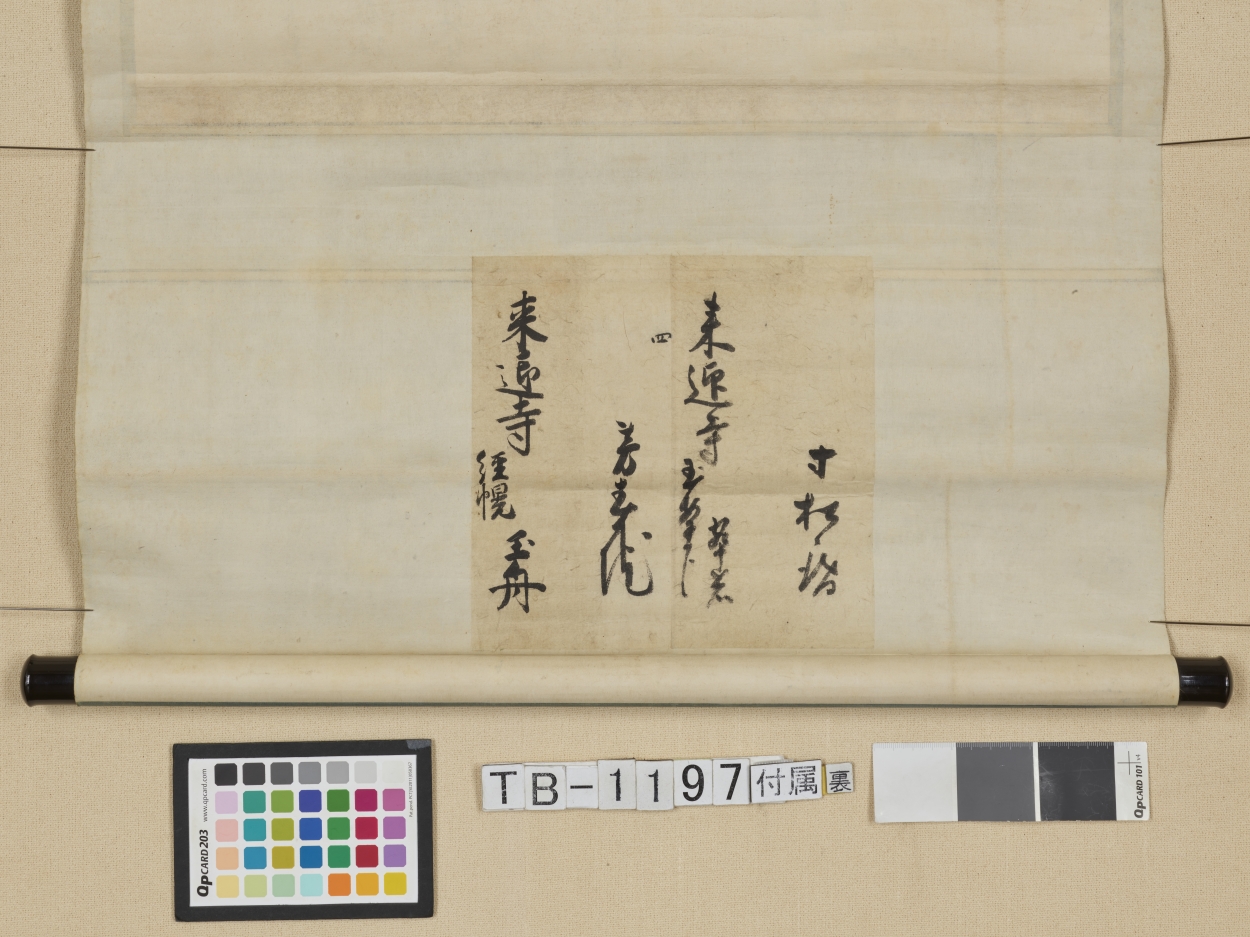 寸松菴
来迎寺
四
芳春院
来迎寺
経幌
玉舟
TB-1197付属裏
QpCARD 203
www.qpcard.com
QpCARD 101